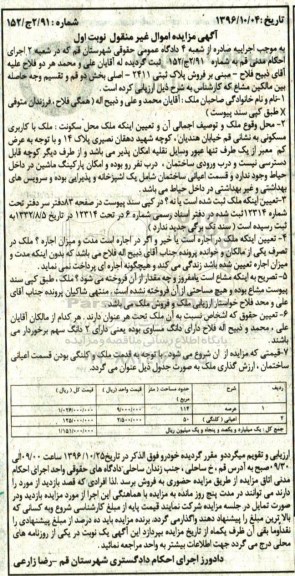 تاریخ: ۱۳۹۶/۱۰/۰۴ شماره: ۱۵۲/ج۲/۹۱
آگهی مزایده اموال غیر منقول نوبت اول
به موجب اجراییه صادره از شعبه ۴ دادگاه عمومی حقوقی شهرستان قم که در شعبه ۲ اجرای
احکام مدنی قم به شماره ۱۵۲/ج۲/۹۱ ثبت گردیده له آقایان علی و محمد هر دو فلاح علیه
آقای ذبیح فلاح - مبنی بر فروش پلاک ثبتی ۲۴۱۱ - اصلی بخش دو قم و تقسیم وجه حاصله
بین مالکین مشاع که کارشناس به شرح ذیل ارزیابی کرده است.
۱-نام و نام خانوادگی صاحبان ملک: آقایان محمد و علی و ذبیح اله (همگی فلاح، فرزندان متوفی
طبق کپی سند پیوست)
۲- محل وقوع ملک و توصیف اجمالی آن و تعیین اینکه ملک محل سکونت: ملک با کاربری
مسکونی به نشانی قم خیابان هندیان، کوچه شهید دهقان نصیری پلاک ۱۴ و با توجه به عرض
کم معبر از یک طرف تنها عبور وسایل نقلیه امکان پذیر می باشد و از طرف دیگر کوچه قابل
دسترسی نیست و درب ورودی ساختمان، درب نفر رو بوده و امکان پارکینگ ماشین در داخل
حیاط وجود ندارد و قسمت اعیانی ساختمان شامل یک آشپزخانه و پذیرایی بوده و سرویس های
بهداشتی و غیر بهداشتی در داخل حیاط می باشد.
۳-تعیین اینکه ملک ثبت شده است یا نه؟ در کپی سند پیوست در صفحه ۸۳دفتر سر دفتر تحت
شماره ۱۲۳۱۴ثبت شده در دفتر اسناد رسمی شماره ۶ در تحت ۱۲۳۱۴ در تاریخ ۱۳۳۲/۸/۵به
ثبت رسیده است (سند تک برگی جدید ندارد)
۴- تعیین اینکه ملک در اجاره است یا خیر و اگر در اجاره است مدت و میزان اجاره؟ ملک در
تصرف یکی از مالکان و خوانده پرونده جناب آقای ذبیح اله فلاح می باشد که بدون اینکه مدت و
میزان اجاره تعیین شده باشد زندگی می کند و هیچگونه اجاره ای پرداخت نمی نماید.
۵- تصریح به اینکه مشاع است یامفروز و چه مقدار از آن فروخته می شود؟ ملک، طبق کپی سند
پیوست مشاع بوده و هیچ مساحتی از آن فروخته نشده است، منتهی شاکیان پرونده جناب آقای
علی و محمد فلاح خواستار ارزیابی ملک و فروش ملک می باشند.
۶- تعیین حقوق که اشخاص نسبت به آن ملک تحت هر عنوان دارند. هر کدام از مالکان آقایان
علی، محمد و ذبیح اله فلاح دارای دانگ مساوی بوده یعنی دارای ۲ دانگ سهم برخوردار می
باشند.
۷-قیمتی که مزایده از ان شروع می شود. با توجه به قدمت ملک و کلنگی بودن قسمت اعیانی
ساختمان، ارزش گذاری ملک به صورت جدول ذیل عنوان می گردد.
ردیف شرح حدود مساحت (متر مربع) قیمت واحد (ریال) قیمت کل (ریال)
۱ عرصه ۱۱۴ ۹/۰۰۰/۰۰۰ ۱/۰۲۶/۰۰۰/۰۰۰
۲ اعیانی (کلنگی) ۵۰ ۲/۵۰۰/۰۰۰ ۱۲۵/۰۰۰/۰۰۰
جمع کل: یک میلیارد و یکصد و پنجاه و یک میلیون ریال ۱/۱۵۱/۰۰۰/۰۰۰
ارزیابی و تقویم میگردد و مقرر گردیده خودرو فوق الذکر در تاریخ ۱۳۹۶/۱۰/۲۵از ساعت ۰۹:۰۰الی
۰۹/۳۰صبح به آدرس قم، خ ساحلی، جنب زندان ساحلی دادگاه های حقوقی واحد اجرای احکام
مدنی اتاق مزایده از طریق مزایده حضوری به فروش برسد. لذا افرادی که قصد بازدید از مورد را
دارند می توانند در مدت پنج روز مانده به مزایده با هماهنگی این اجرا از مورد مزایده بازدید ودر
صورت تمایل در جلسه مزایده شرکت نمایند قیمت پایه از مبلغ کارشناسی شروع وبه کسانی که
بالا ترین مبلغ را پیشنهاد دهند واگذارمی گردد. برنده مزایده باید ده درصد از مبلغ پیشنهادی را
نقداوما بقی آن ظرف یکماه از تاریخ مزایده بپردازد این آگهی یک نوبت در یکی از روزنامه های
محلی درج می گردد جهت اطلاعات بیشتر به واحد مراجعه نمائید.
دادورز اجرای احکام دادگستری شهرستان قم -رضا زارعی